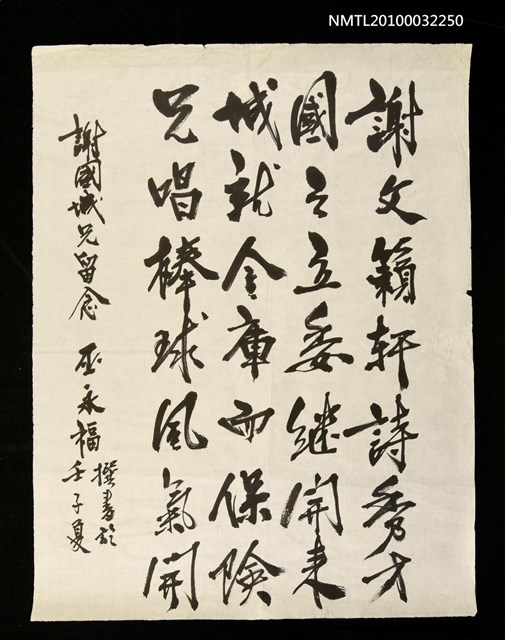 NMTL20100032250
謝文籟軒詩秀才
國之立委繼開来
城就金庫而保險
兄唱棒球風氣開
謝國城兄留念 巫永福
撰書於
壬子夏